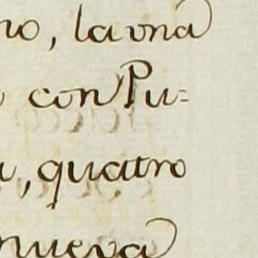 no, la vna
con Pu=
a, quatro
nueva